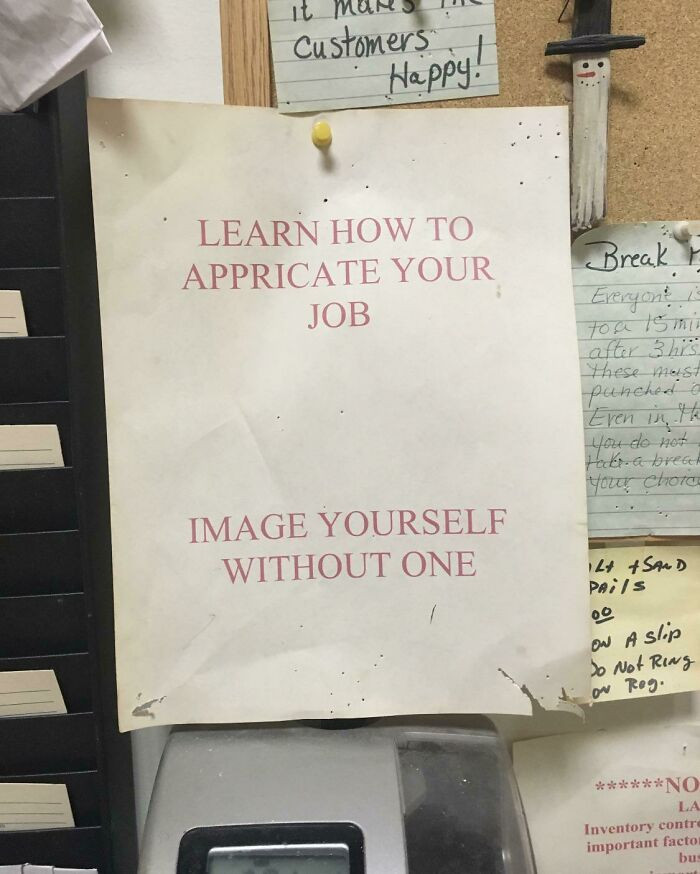 it makes the
Customers
Happy!
LEARN HOW TO
APPRICATE YOUR
JOB
IMAGE YOURSELF
WITHOUT ONE
Break
Everyone is
to a 15 min
after 3 hrs
These must
punched o
Even in th
you do not
take a break
your choice
+ SAND
PAils
ON A Slip
Do Not Ring
ON Reg.
******NO
LA
Inventory contr
important facto
bus